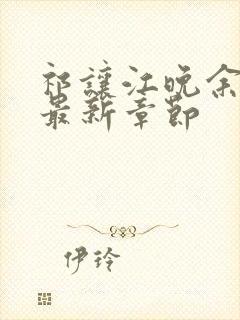 祁讓江晚余
最新章節
伊玲